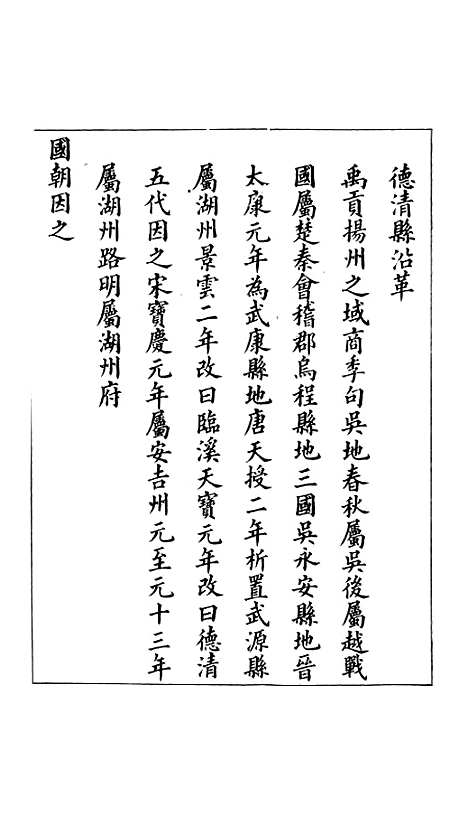 德清縣沿革
禹貢揚州之域商季句吳地春秋屬吳後屬越戰
國屬楚秦會稽郡烏程縣地三國吳永安縣地晉
太康元年為武康縣地唐天授二年析置武源縣
屬湖州景雲二年改曰臨溪天寶元年改曰德清
五代因之宋寶慶元年屬安吉州元至元十三年
屬湖州路明屬湖州府
國朝因之